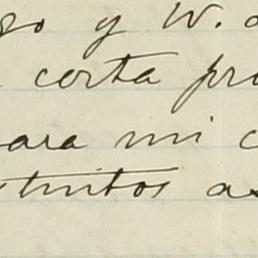 go y W.
corta pr
para mi c
stintos as